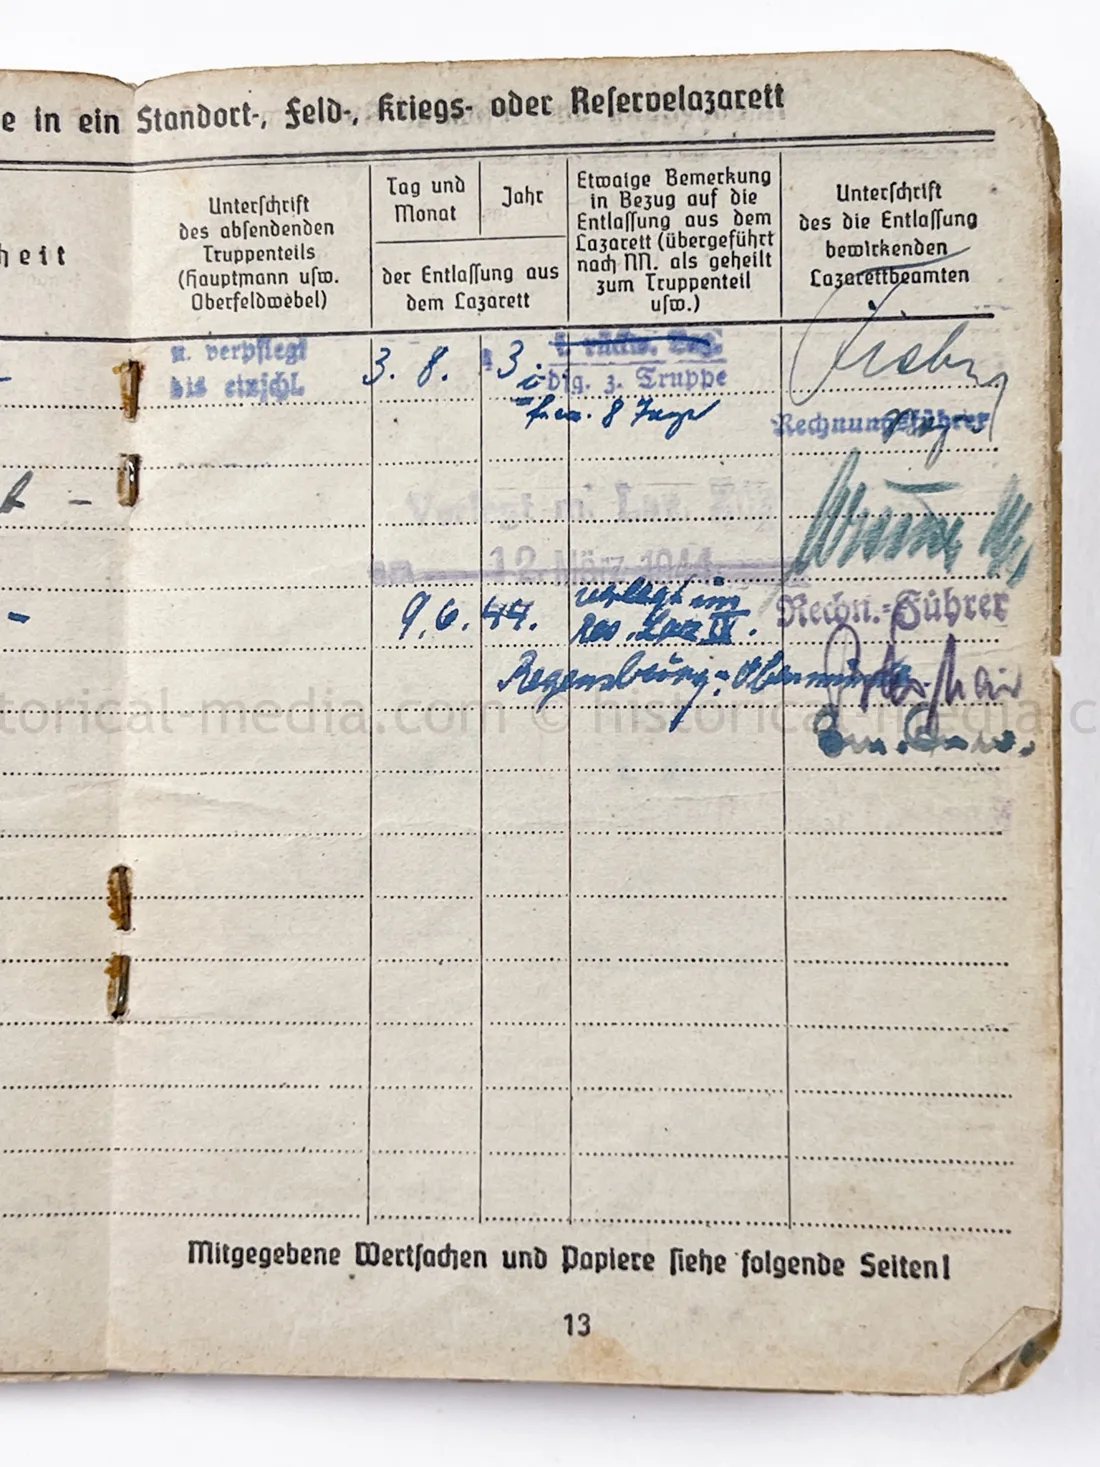 e in ein Standort-, Feld-, Kriegs- oder Reservelazarett
heit
Unterschrift
des absendenden
Truppenteils
(Hauptmann usw.
Oberfeldwebel)
Tag und
Monat
Jahr
der Entlassung aus
dem Lazarett
Etwaige Bemerkung
in Bezug auf die
Entlassung aus dem
Lazarett (übergeführt
nach NN. als geheilt
zum Truppenteil
usw.)
Unterschrift
des die Entlassung
bewirkenden
Lazarettbeamten
u. verpflegt
bis einschl.
3. 8.
3
dfg. z. Truppe
8 Tage
Rechnungsführer
Verlegt m. Laz.
am 12. März 1944
9. 6. 44.
verlegt im
Res. Laz IV.
Rechn.-Führer
Regensburg-
historical-media.com © historical-media.c
Mitgegebene Wertsachen und Papiere siehe folgende Seiten!
13